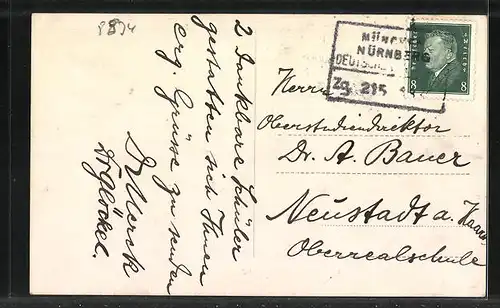 8894
2 dankbare Schüler
gestatten sich Ihnen
erg. Grüsse zu senden
Dr Merck
Dr Glöckel.
MÜNCHEN
NÜRNBERG
DEUTSCHE
Zg. 215
8 8
Herrn
Oberstudiendirektor
Dr. A. Bauer
Neustadt a. Haardt
Oberrealschule